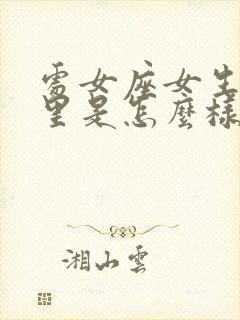 處女座女生
里是怎麼樣
湘山雲